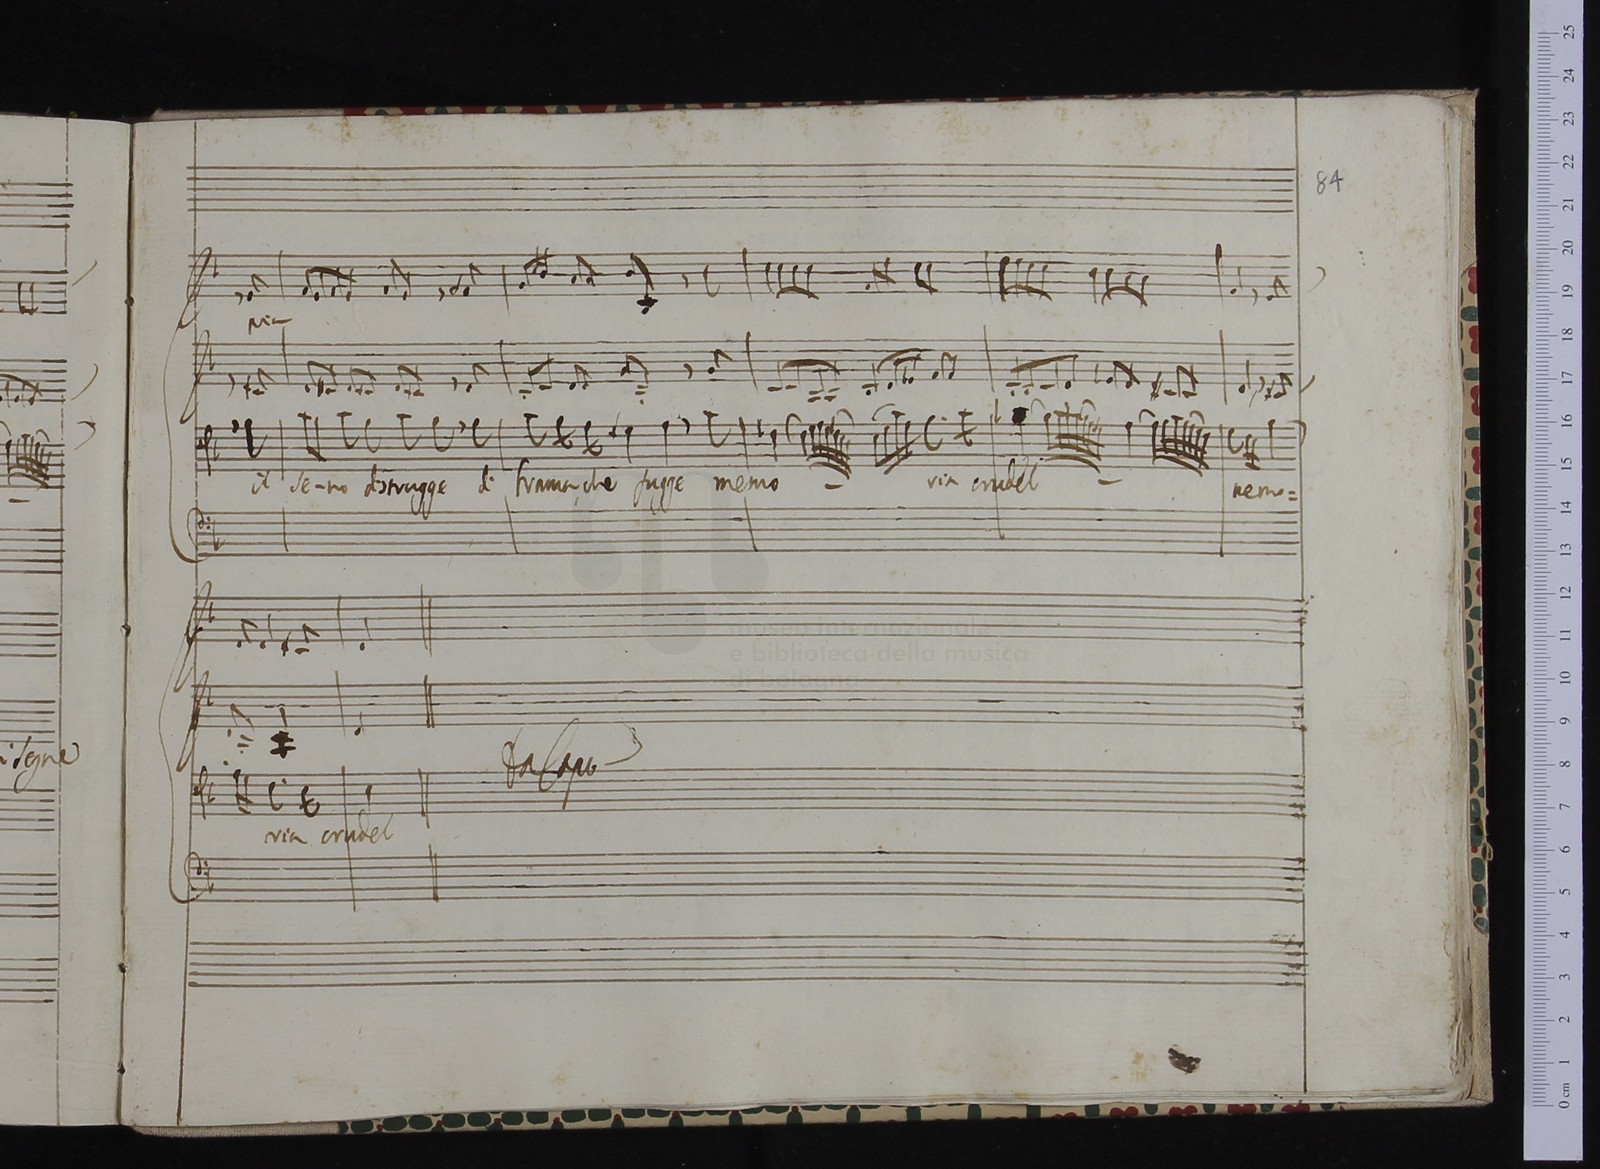 84
pia
il se-no distrugge di
che fugge memo - via crudel - memo=
via crudel
Da Capo
museo internazionale
e biblioteca della musica
di bologna
25
24
23
22
21
20
19
18
17
16
15
14
13
12
11
10
9
8
7
6
5
4
3
2
1
0 cm